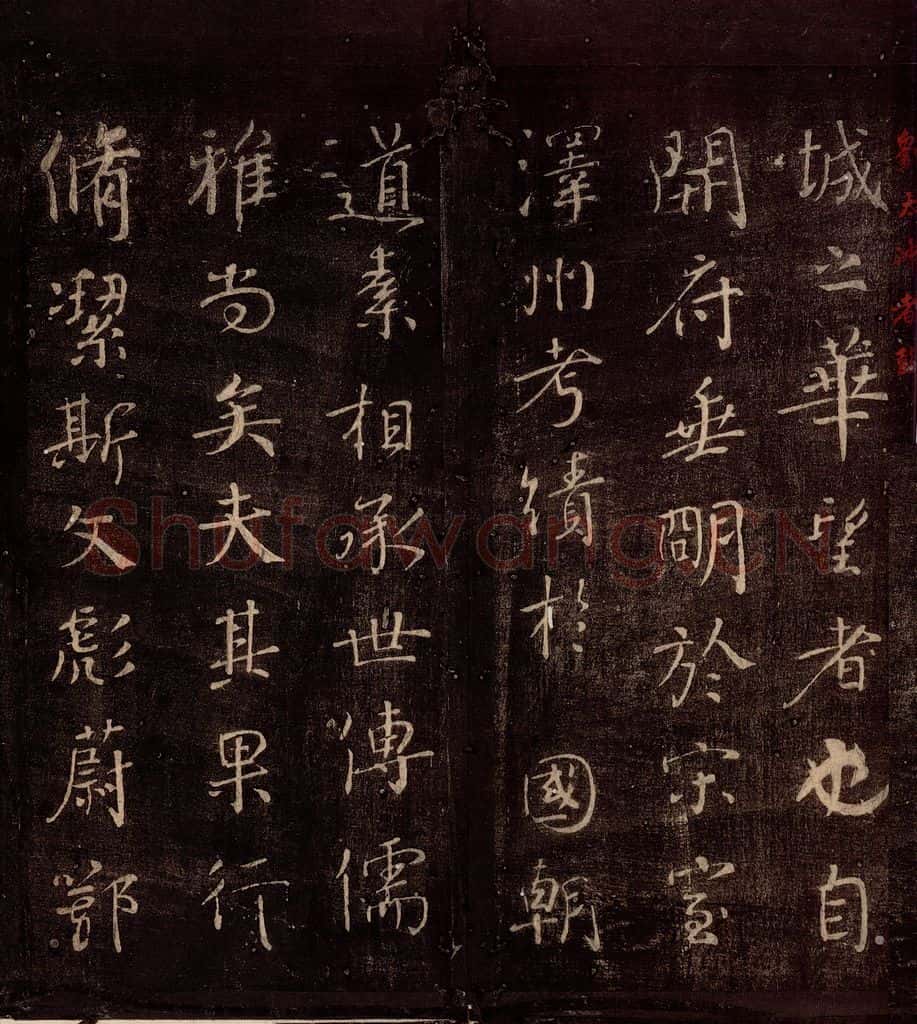 城之華望者也自
開府垂明於宋室
澤州考績於國朝
道素相承世傳儒
雅尚矣夫其果行
脩潔斯文彪蔚鄂
Shufawang.CN